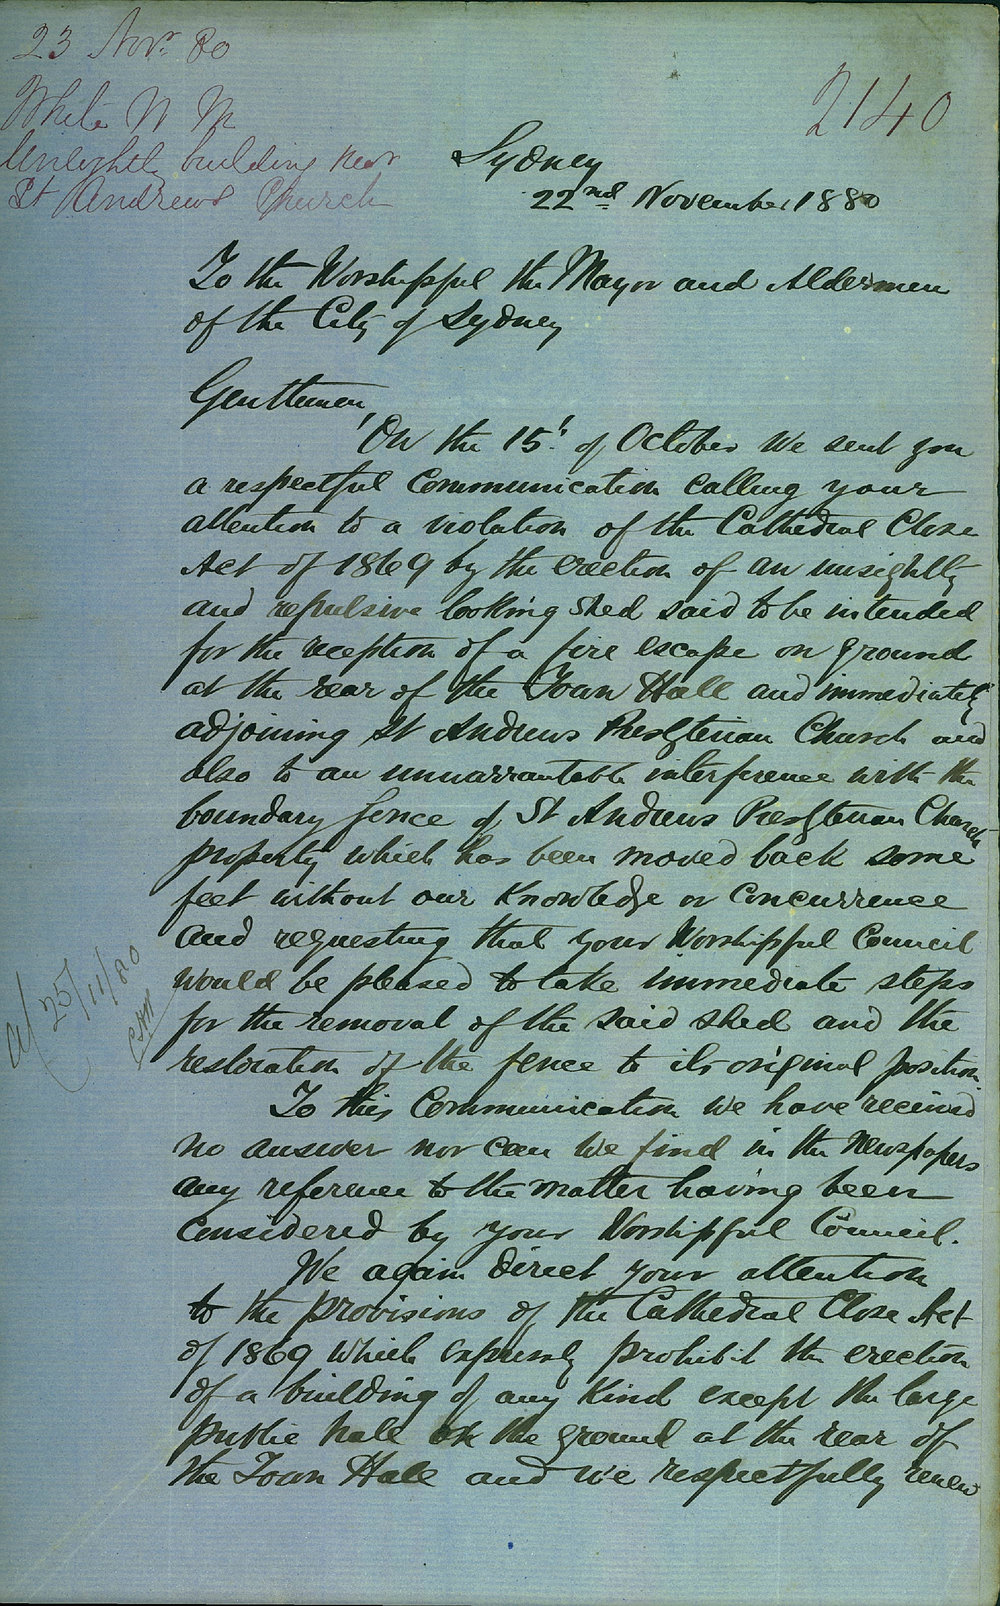 23 Novr. 80
2140
White W M
Unsightly building near
St Andrews Church
Sydney
22nd November 1880
To the Worshipful the Mayor and Aldermen
of the City of Sydney
Gentlemen,
On the 15t. of October we sent you
a respectful Communication calling your
attention to a violation of the Cathedral Close
Act of 1869 by the erection of an unsightly
and repulsive looking shed said to be intended
for the reception of a fire escape on ground
at the rear of the Town Hall and immediately
adjoining St Andrews Presbyterian Church and
also to an unwarrantable interference with the
boundary fence of St Andrews Presbyterian Church
property which has been moved back some
feet without our Knowledge or Concurrence
and requesting that your Worshipful Council
would be pleased to take immediate steps
for the removal of the said shed and the
restoration of the fence to its original position.
To this Communication we have received
no answer nor can we find in the Newspapers
any reference to the matter having been
Considered by your Worshipful Council.
We again direct your attention
to the provisions of the Cathedral Close Act
of 1869 which expressly prohibit the erection
of a building of any Kind except the large
public hall on the ground at the rear of
the Town Hall and we respectfully renew
25/11/80